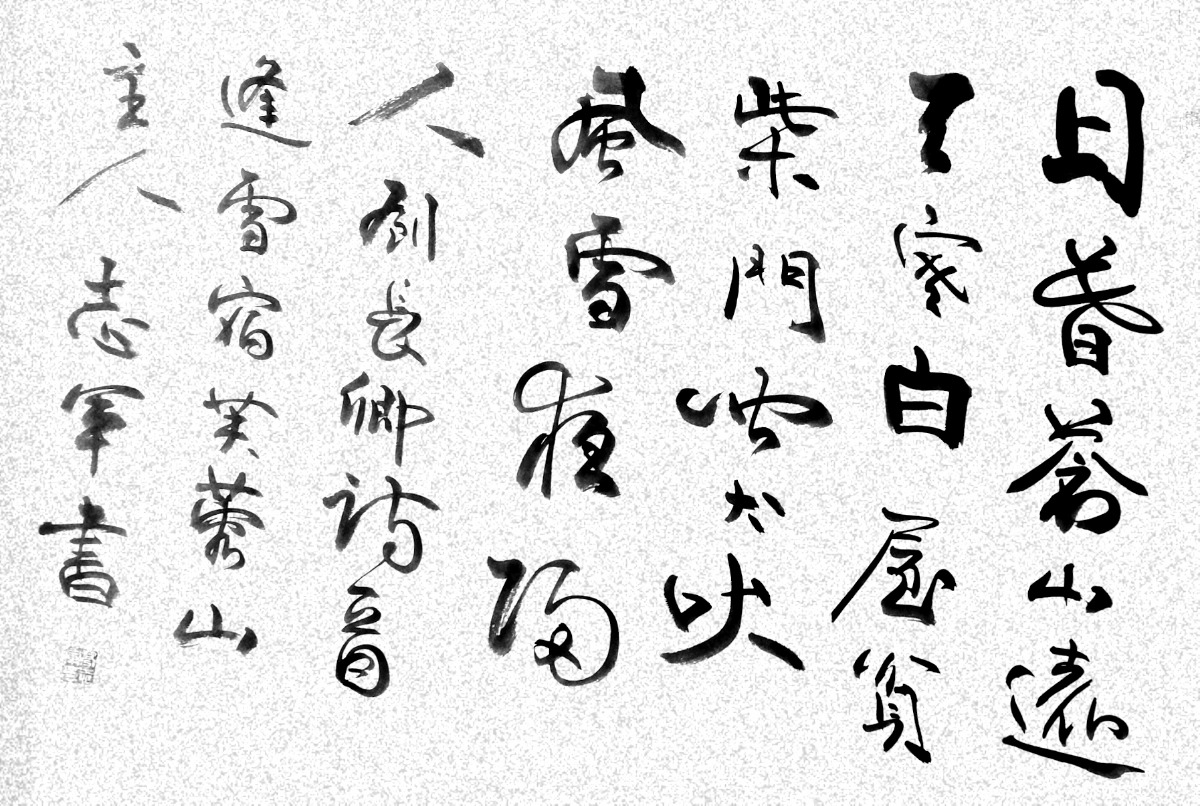 日暮蒼山遠
天寒白屋貧
柴門聞犬吠
風雪夜歸
人劉長卿詩首
逢雪宿芙蓉山
主人志軍書